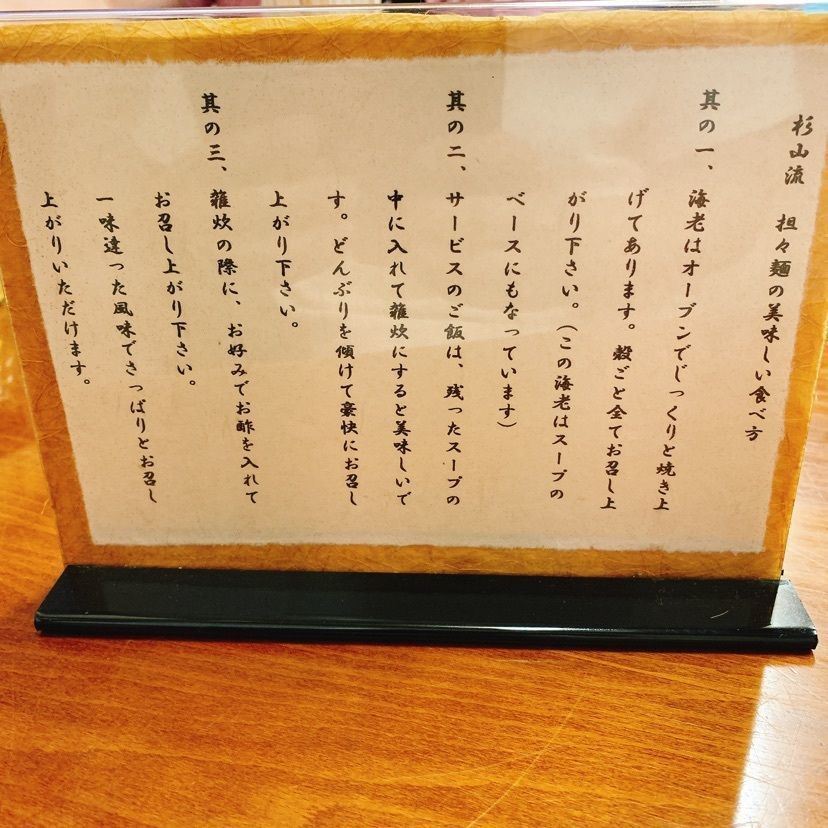 杉山流　担々麺の美味しい食べ方
其の一、海老はオーブンでじっくりと焼き上
げてあります。殻ごと全てお召し上
がり下さい。（この海老はスープの
ベースにもなっています）
其の二、サービスのご飯は、残ったスープの
中に入れて雑炊にすると美味しいで
す。どんぶりを傾けて豪快にお召し
上がり下さい。
其の三、雑炊の際に、お好みでお酢を入れて
お召し上がり下さい。
一味違った風味でさっぱりとお召し
上がりいただけます。